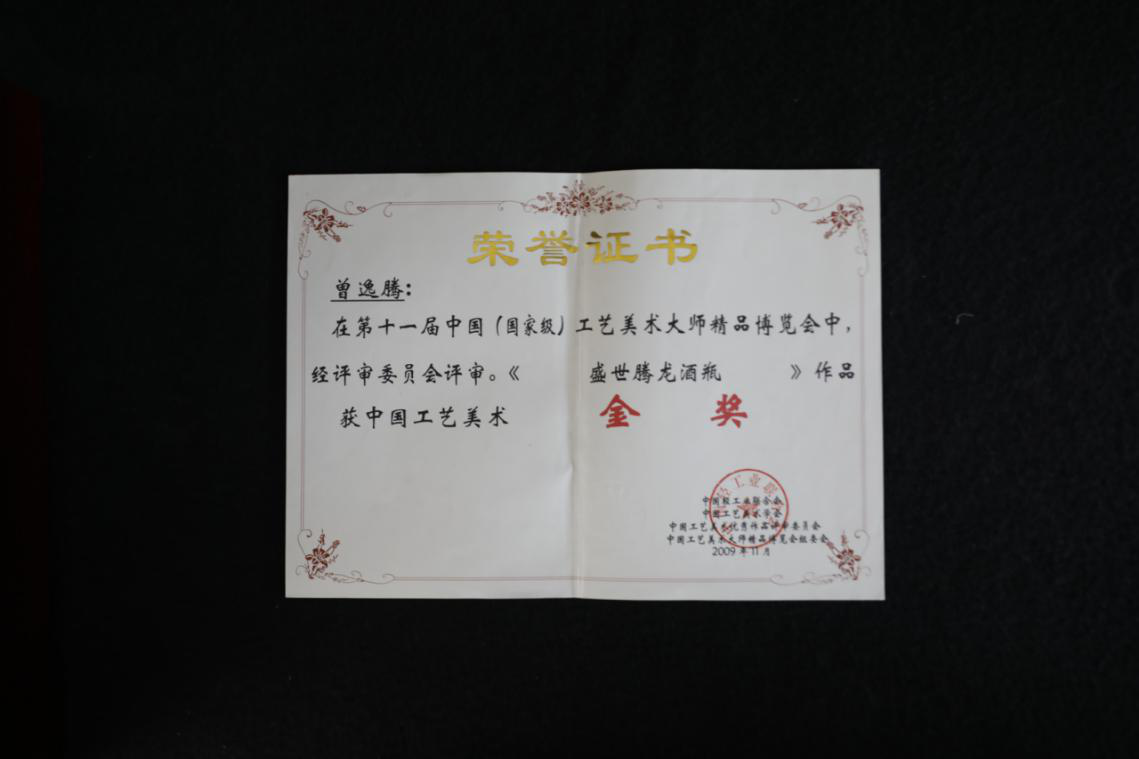 荣誉证书
曾逸腾：
在第十一届中国（国家级）工艺美术大师精品博览会中，
经评审委员会评审。《 盛世腾龙酒瓶 》作品
获中国工艺美术 金 奖
中国轻工业联合会
中国工艺美术学会
中国工艺美术优秀作品评审委员会
中国工艺美术大师精品博览会组委会
2009 年 11 月